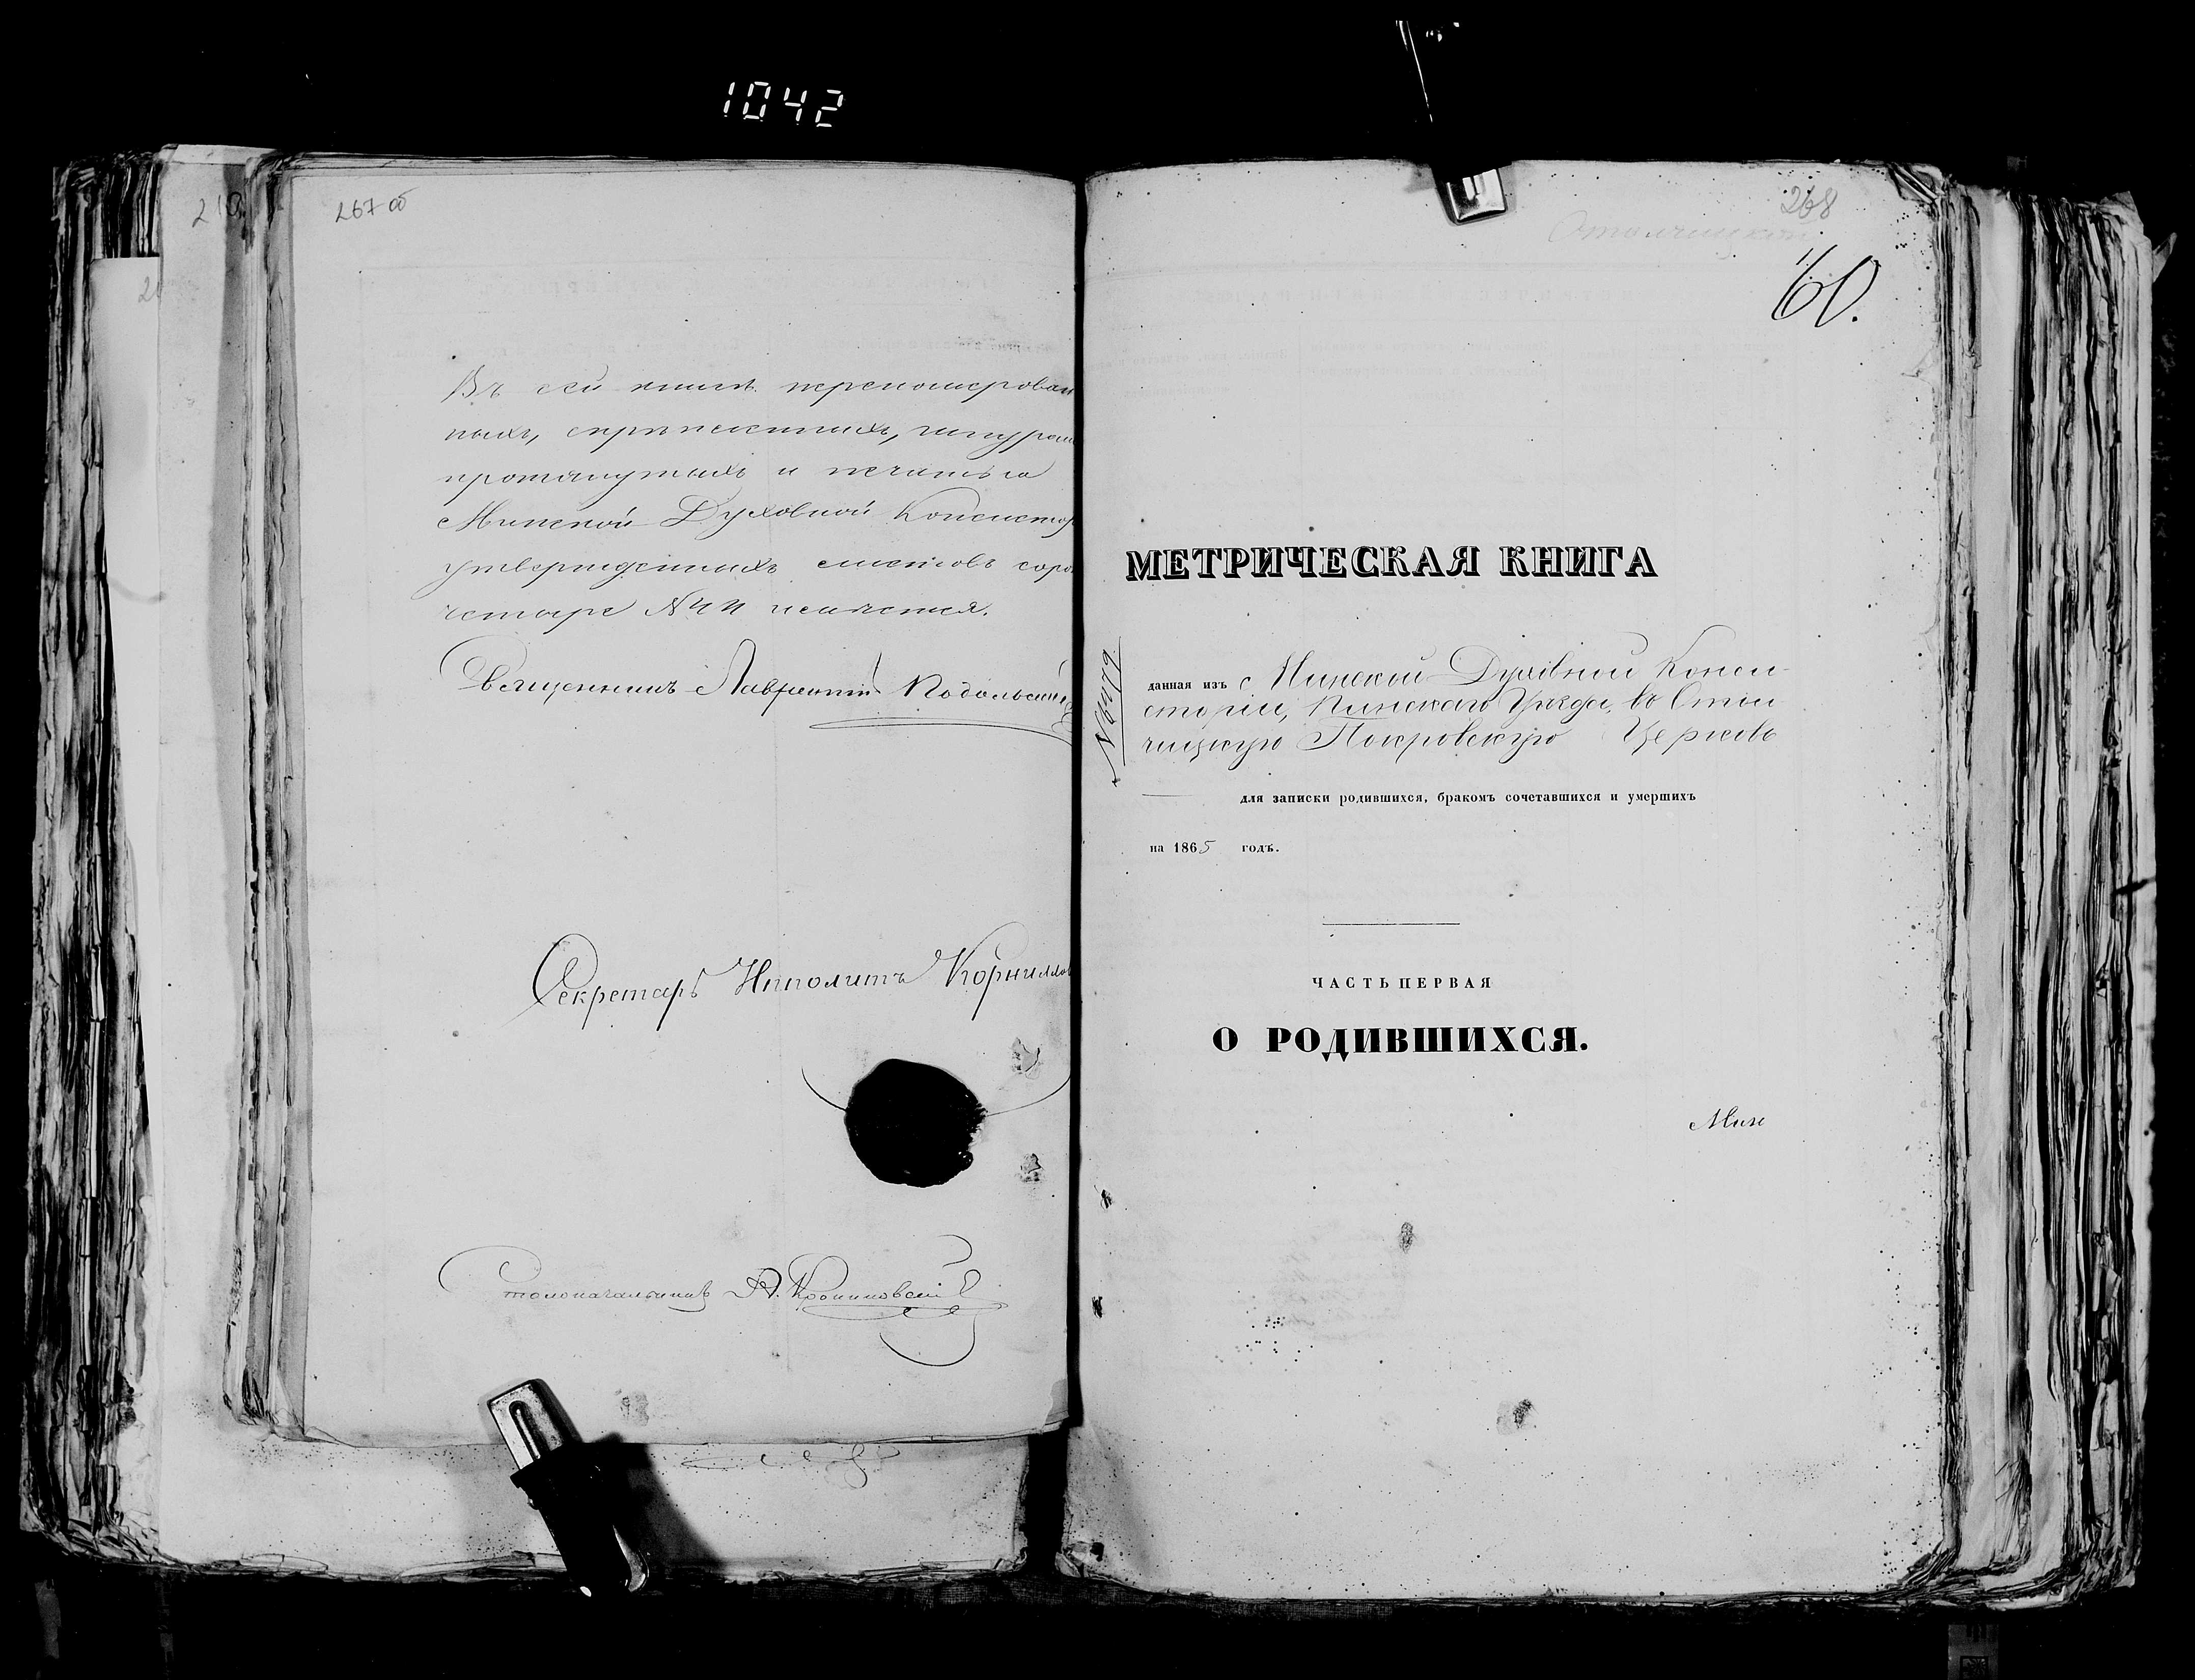 1042
267 об
Въ сей книгѣ перенумерован
ныхъ, скрѣпленныхъ, шнуром
протянутыхъ и печатью
Минской Духовной Консистор
утвержденныхъ листовъ соро
четыре №44 числится.
Священникъ Лаврентій Подольскій
Секретарь Ипполитъ Корнилов
Столоначальникъ
268
60.
МЕТРИЧЕСКАЯ КНИГА
№6449
данная изъ Минской Духовной Конси-
сторіи, Пинскаго Уѣзда, во Стол
чицкую Покровскую Церковь
для записки родившихся, бракомъ сочетавшихся и умершихъ
на 1865 годъ.
ЧАСТЬ ПЕРВАЯ
О РОДИВШИХСЯ.
Мин